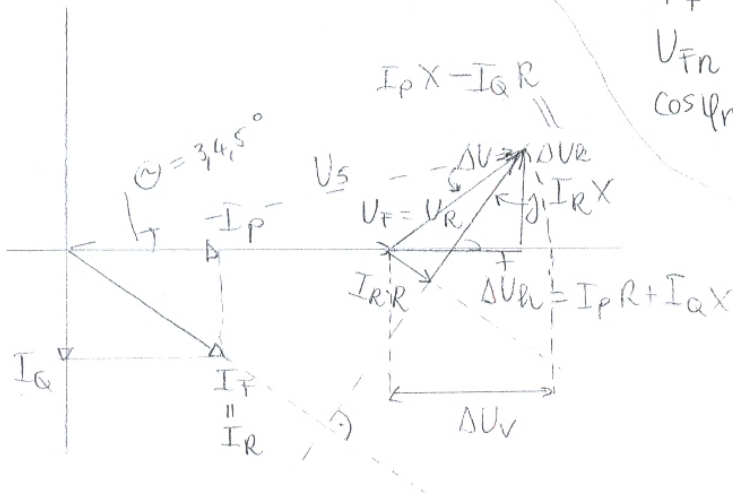 U_Fn
cosφ_n
I_P X − I_Q R
= 3,4,5°
U_S
ΔU
ΔU_R
I_P
U_F = U_R
jI_R X
I_R·R
= I_P R + I_Q X
I_Q
I_F
=
I_R
ΔU_V